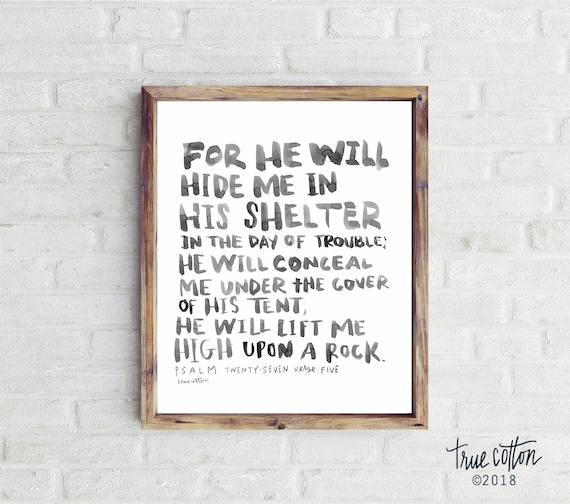 FOR HE WILL
HIDE ME IN
HIS SHELTER
IN THE DAY OF TROUBLE;
HE WILL CONCEAL
ME UNDER the COVER
OF HIS TENT,
HE WILL LIFT ME
HIGH UPON A ROCK.
PSALM TWENTY-SEVEN verse FIVE
true cotton
true cotton
©2018